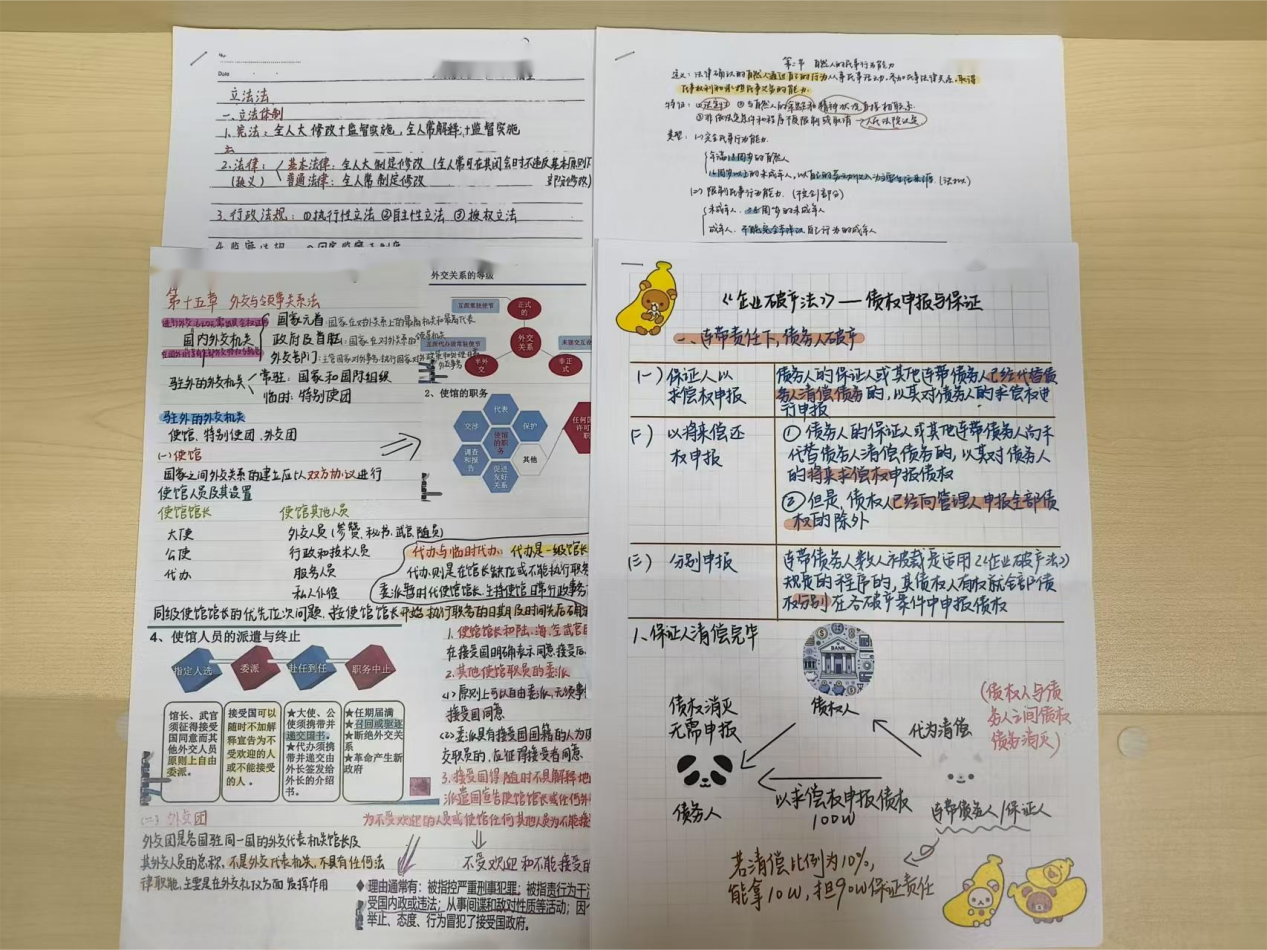 No
Date
立法法
一、立法体制
1、宪法：全人大修改+监督实施，全人常解释，+监督实施
2、法律：基本法律：全人大制定修改（全人常可在其闭会时不违反基本原则下
（狭义） 普通法律：全人常制定修改 部分修改）
3、行政法规：①执行性立法 ②自主性立法 ③授权立法
第二节 自然人的民事行为能力
定义：法律确认的自然人通过自己的行为从事民事活动，参加民事法律关系，取得
民事权利和承担民事义务的能力
特征：①法定 ②与自然人的年龄和精神状况直接相联系
③非依法定条件和程序不受限制或取消→人民法院认定
类型：(一)完全民事行为能力
年满18周岁的自然人
(二)限制民事行为能力
未成年人：周岁的未成年人
成年人：不能完全辨认自己行为的成年人
第十五章 外交与领事关系法
国内外交机关
国家元首：国家在对外关系上的最高机关和最高代表
政府及首脑：国家在对外关系的领导机关
外交部门：主管国家对外事务，执行国家对外政策和处理日常
外交事务
驻外的外交机关
常驻：国家和国际组织
临时：特别使团
驻外的外交机关
使馆、特别使团、外交团
(一)使馆
国家之间外交关系的建立应以双方协议进行
使馆人员及其设置
使馆馆长 使馆其他人员
大使 外交人员（参赞、秘书、武官、随员）
公使 行政和技术人员
代办 服务人员
私人仆役
代办与临时代办：代办是一级馆长
代办则是在馆长缺位或不能执行职务
委派暂时代使馆馆长主持使馆日常行政事务
同级使馆馆长的优先位次问题，按使馆馆长开始执行职务的日期及时间先后确定
外交关系的等级
正式的
外交关系
半外交
非正式
2、使馆的职务
代表
交涉
保护
使馆的职务
调查和报告
其他
促进友好关系
4、使馆人员的派遣与终止
指定人选 委派 赴任到任 职务中止
馆长、武官须征得接受国同意而其他外交人员原则上自由委派。
接受国可以随时不加解释宣告为不受欢迎的人或不能接受的人。
★大使、公使须携带并递交国书。
★代办须携带并递交由外长签发给外长的介绍书。
★任期届满
★召回或驱逐
★断绝外交关系
★革命产生新政府
1、使馆馆长和陆、海、空武官
在接受国明确表示同意接受后
2、其他使馆职员的委派
(1)原则上可以自由委派，无须事
接受国同意
(2)委派具有接受国国籍的人为
交职员的，应征得接受者同意
3、接受国得随时不具解释地
派遣国宣告使馆馆长或任何外
为不受欢迎的人员或使馆任何其他人员为不能接
不受欢迎和不能接受的
(二)外交团
外交团是各国驻同一国的外交代表机关馆长及
其外交人员的总称，不是外交代表机关，不具有任何法
律职能，主要是在外交礼仪方面发挥作用
◆理由通常有：被指控严重刑事犯罪；被指责行为干
受国内政或违法；从事间谍和敌对性质等活动；因个
举止、态度、行为冒犯了接受国政府。
《企业破产法》——债权申报与保证
一、连带责任下，债务人破产
(一) 保证人以求偿权申报
债务人的保证人或其他连带债务人已经代替债
务人清偿债务的，以其对债务人的求偿权进
行申报
(二) 以将来偿还权申报
①债务人的保证人或其他连带债务人尚未
代替债务人清偿债务的，以其对债务人
的将来求偿权申报债权
②但是，债权人已经向管理人申报全部债
权的除外
(三) 分别申报
连带债务人数人被裁定适用《企业破产法》
规定的程序的，其债权人有权就全部债
权分别在各破产案件中申报债权
1、保证人清偿完毕
BANK
债权人
债权消灭
无需申报
代为清偿
（债权人与债
务人之间债权
债务消灭）
债务人
以求偿权申报债权
100W
连带债务人/保证人
若清偿比例为10%，
能拿10W，担90W保证责任